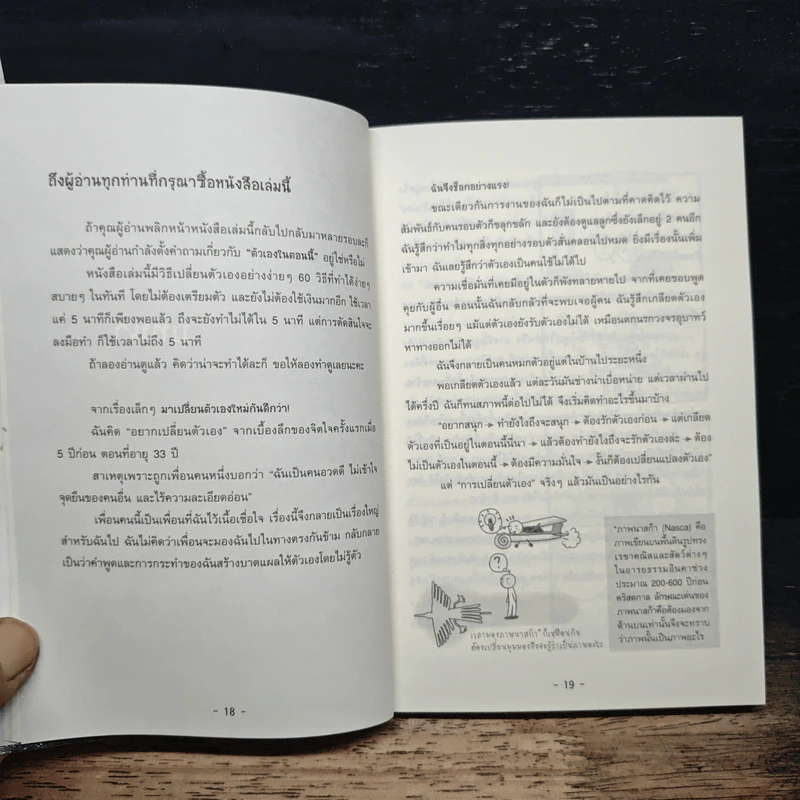 ถึงผู้อ่านทุกท่านที่กรุณาซื้อหนังสือเล่มนี้
ถ้าคุณผู้อ่านพลิกหน้าหนังสือเล่มนี้กลับไปกลับมาหลายรอบละก็
แสดงว่าคุณผู้อ่านกำลังตั้งคำถามเกี่ยวกับ "ตัวเองในตอนนี้" อยู่ใช่หรือไม่
หนังสือเล่มนี้มีวิธีเปลี่ยนตัวเองอย่างง่ายๆ 60 วิธีที่ทำได้ง่ายๆ
สบายๆ ในทันที โดยไม่ต้องเตรียมตัว และยังไม่ต้องใช้เงินมากอีก ใช้เวลา
แค่ 5 นาทีก็เพียงพอแล้ว ถึงจะยังทำไม่ได้ใน 5 นาที แต่การตัดสินใจจะ
ลงมือทำ ก็ใช้เวลาไม่ถึง 5 นาที
ถ้าลองอ่านดูแล้ว คิดว่าน่าจะทำได้ละก็ ขอให้ลองทำดูเลยนะคะ
จากเรื่องเล็กๆ มาเปลี่ยนตัวเองใหม่กันดีกว่า!
ฉันคิด "อยากเปลี่ยนตัวเอง" จากเบื้องลึกของจิตใจครั้งแรกเมื่อ
5 ปีก่อน ตอนที่อายุ 33 ปี
สาเหตุเพราะถูกเพื่อนคนหนึ่งบอกว่า "ฉันเป็นคนอวดดี ไม่เข้าใจ
จุดยืนของคนอื่น และไร้ความละเอียดอ่อน"
เพื่อนคนนี้เป็นเพื่อนที่ฉันไว้เนื้อเชื่อใจ เรื่องนี้จึงกลายเป็นเรื่องใหญ่
สำหรับฉันไป ฉันไม่คิดว่าเพื่อนจะมองฉันไปในทางตรงกันข้าม กลับกลาย
เป็นว่าคำพูดและการกระทำของฉันสร้างบาดแผลให้ตัวเองโดยไม่รู้ตัว
- 18 -
ฉันจึงช็อกอย่างแรง!
ขณะเดียวกันการงานของฉันก็ไม่เป็นไปตามที่คาดคิดไว้ ความ
สัมพันธ์กับคนรอบตัวก็ขลุกขลัก และยังต้องดูแลลูกซึ่งยังเล็กอยู่ 2 คนอีก
ฉันรู้สึกว่าทำไมทุกสิ่งทุกอย่างรอบตัวสั่นคลอนไปหมด ยิ่งมีเรื่องนั้นเพิ่ม
เข้ามา ฉันเลยรู้สึกว่าตัวเองเป็นคนใช้ไม่ได้ไป
ความเชื่อมั่นที่เคยมีอยู่ในตัวก็พังทลายหายไป จากที่เคยชอบพูด
คุยกับผู้อื่น ตอนนั้นฉันกลับกลัวที่จะพบเจอผู้คน ฉันรู้สึกเกลียดตัวเอง
มากขึ้นเรื่อยๆ แม้แต่ตัวเองยังรับตัวเองไม่ได้ เหมือนตกนรกวงจรอุบาทว์
หาทางออกไม่ได้
ฉันจึงกลายเป็นคนหมกตัวอยู่แต่ในบ้านไประยะหนึ่ง
พอเกลียดตัวเองแล้ว แต่ละวันมันช่างน่าเบื่อหน่าย แต่เวลาผ่านไป
ได้ครึ่งปี ฉันก็ทนสภาพนี้ต่อไปไม่ได้ จึงเริ่มคิดทำอะไรขึ้นมาบ้าง
"อยากสนุก → ทำยังไงถึงจะสนุก → ต้องรักตัวเองก่อน → แต่เกลียด
ตัวเองที่เป็นอยู่ในตอนนี้นี่นา → แล้วต้องทำยังไงถึงจะรักตัวเองล่ะ → ต้อง
ไม่เป็นตัวเองในตอนนี้ → ต้องมีความมั่นใจ → งั้นก็ต้องเปลี่ยนแปลงตัวเอง"
แต่ "การเปลี่ยนตัวเอง" จริงๆ แล้วมันเป็นอย่างไรกัน
?
เวลามองภาพนาสก้า* ก็เหมือนกัน
ต้องเปลี่ยนมุมมองถึงจะรู้ว่าเป็นภาพอะไร
*ภาพนาสก้า (Nasca) คือ
ภาพเขียนบนพื้นดินรูปทรง
เรขาคณิตและสัตว์ต่างๆ
ในอารยธรรมอินคาช่วง
ประมาณ 200-600 ปีก่อน
คริสตกาล ลักษณะเด่นของ
ภาพนาสก้าคือต้องมองจาก
ด้านบนเท่านั้นจึงจะทราบ
ว่าภาพนั้นเป็นภาพอะไร
- 19 -